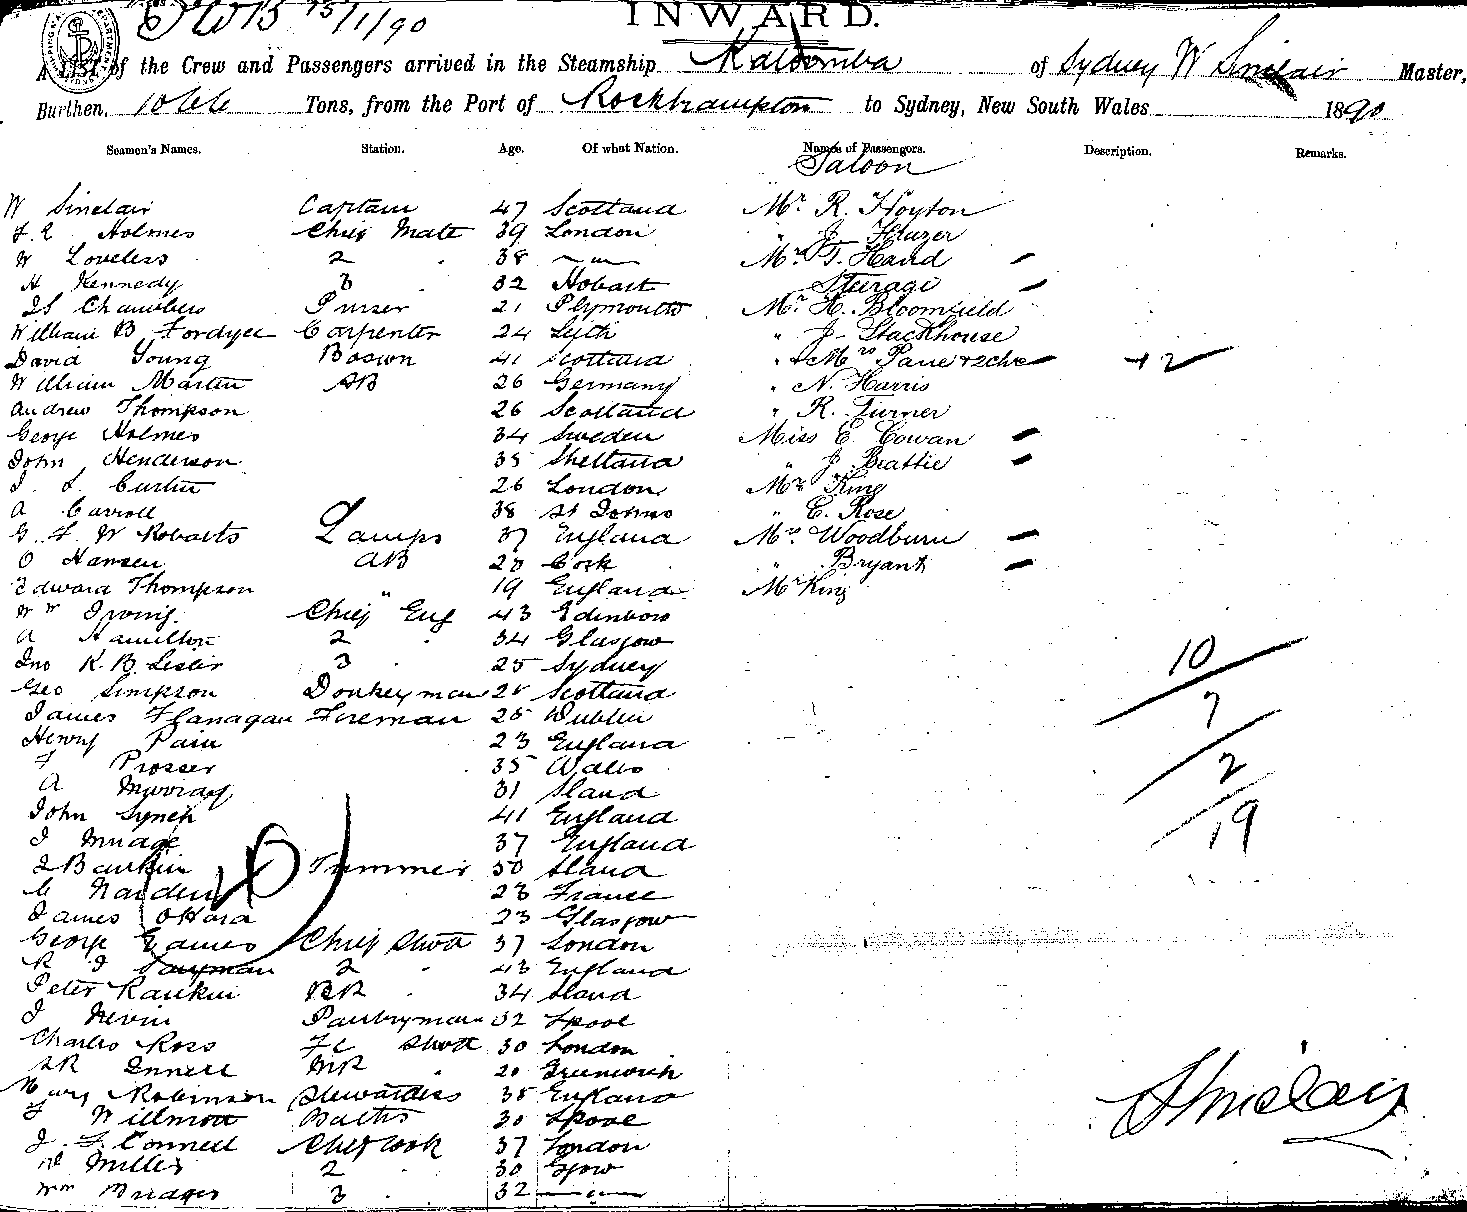 15/1/90
INWARD.
A LIST of the Crew and Passengers arrived in the Steamship Katoomba of Sydney W Sinclair Master,
Burthen, 1066 Tons, from the Port of Rockhampton to Sydney, New South Wales 1890
Seamen's Names. Station. Age. Of what Nation. Names of Passengers. Description. Remarks.
Saloon
W Sinclair Captain 47 Scotland Mr. R. Hoyton
F. R Holmes Chief Mate 39 London " J
W Loveless 2 " 38 —"— Mr. T. Hand
H Kennedy 3 32 Hobart Steerage
Chambers Purser 21 Plymouth Mr. H. Bloomfield
William B Fordyce Carpenter 24 Leith " J Stackhouse
David Young Bosun 41 Scotland " + Mrs Pane + 2 Chn + 2
William Martin AB 26 Germany " N. Harris
Andrew Thompson 26 Scotland " R. Turner
George Holmes 34 Sweden Miss E. Cowan
John Henderson 35 Shetland " J Beattie
J. L. Curtin 26 London Mr King
A Carroll 38 St Johns " E. Rose
G. F. W Roberts Lamps 37 England Mrs Woodburn
O Hansen AB 28 Cork " Bryant
Edward Thompson 19 England Mr King
Wm Irving Chief Eng 43 Edinboro
A Hamilton 2 " 34 Glasgow
Jno K. B. Lester 3 " 25 Sydney
Geo Simpson Donkeyman 28 Scotland
James Flanagan Fireman 25 Dublin
Henry Pain 23 England
F Prosser 35 Wales
A Murray 31 Sland
John Lynch 41 England
J Mudge 37 England
J Bankin Trimmer 30 Sland
C Narden 23 France
James OHara 23 Glasgow
George Eames Chief Stwd 37 London
R J 2 " 43 England
Peter Rankin BR 34 Sland
J Nevin Pantryman 32 Lpool
Charles Ross FC Stwd 30 London
Innell MR " 20 Greenwich
Mary Robinson Stewardess 35 England
F Willmott Baths 30 Lpool
J. F. Connell Chief Cook 37 London
Miller 2 30 Ggow
Wm Bridges 3 32 —"—
10
7
2
19
W Sinclair